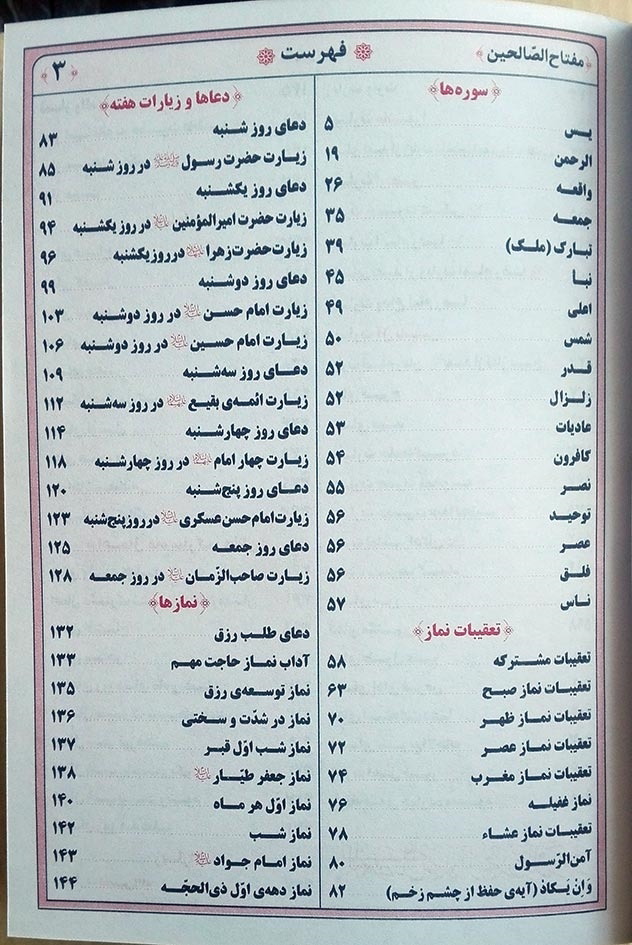 ﴿مفتاح الصّالحین﴾
فهرست
﴿۳﴾
﴿سوره‌ها﴾
یس ۵
الرحمن ۱۹
واقعه ۲۶
جمعه ۳۵
تبارک (ملک) ۳۹
نبا ۴۵
اعلی ۴۹
شمس ۵۰
قدر ۵۲
زلزال ۵۲
عادیات ۵۳
کافرون ۵۴
نصر ۵۵
توحید ۵۶
عصر ۵۶
فلق ۵۶
ناس ۵۷
﴿تعقیبات نماز﴾
تعقیبات مشترکه ۵۸
تعقیبات نماز صبح ۶۳
تعقیبات نماز ظهر ۷۰
تعقیبات نماز عصر ۷۲
تعقیبات نماز مغرب ۷۴
نماز غفیله ۷۶
تعقیبات نماز عشاء ۷۸
آمن‌الرّسول ۸۰
وَاِنْ یَکادُ (آیه‌ی حفظ از چشم زخم) ۸۲
﴿دعاها و زیارات هفته﴾
دعای روز شنبه ۸۳
زیارت حضرت رسول ﷺ در روز شنبه ۸۵
دعای روز یکشنبه ۹۱
زیارت حضرت امیرالمؤمنین علیه‌السلام در روز یکشنبه ۹۴
زیارت حضرت زهرا علیهاالسلام در روز یکشنبه ۹۶
دعای روز دوشنبه ۹۹
زیارت امام حسن علیه‌السلام در روز دوشنبه ۱۰۳
زیارت امام حسین علیه‌السلام در روز دوشنبه ۱۰۶
دعای روز سه‌شنبه ۱۰۹
زیارت ائمه‌ی بقیع علیهم‌السلام در روز سه‌شنبه ۱۱۲
دعای روز چهارشنبه ۱۱۴
زیارت چهار امام علیهم‌السلام در روز چهارشنبه ۱۱۸
دعای روز پنج‌شنبه ۱۲۰
زیارت امام حسن عسکری علیه‌السلام در روز پنج‌شنبه ۱۲۳
دعای روز جمعه ۱۲۵
زیارت صاحب‌الزّمان علیه‌السلام در روز جمعه ۱۲۸
﴿نمازها﴾
دعای طلب رزق ۱۳۲
آداب نماز حاجت مهم ۱۳۳
نماز توسعه‌ی رزق ۱۳۵
نماز در شدّت و سختی ۱۳۶
نماز شب اوّل قبر ۱۳۷
نماز جعفر طیّار علیه‌السلام ۱۳۸
نماز اوّل هر ماه ۱۴۰
نماز شب ۱۴۲
نماز امام جواد علیه‌السلام ۱۴۳
نماز دهه‌ی اوّل ذی‌الحجّه ۱۴۴